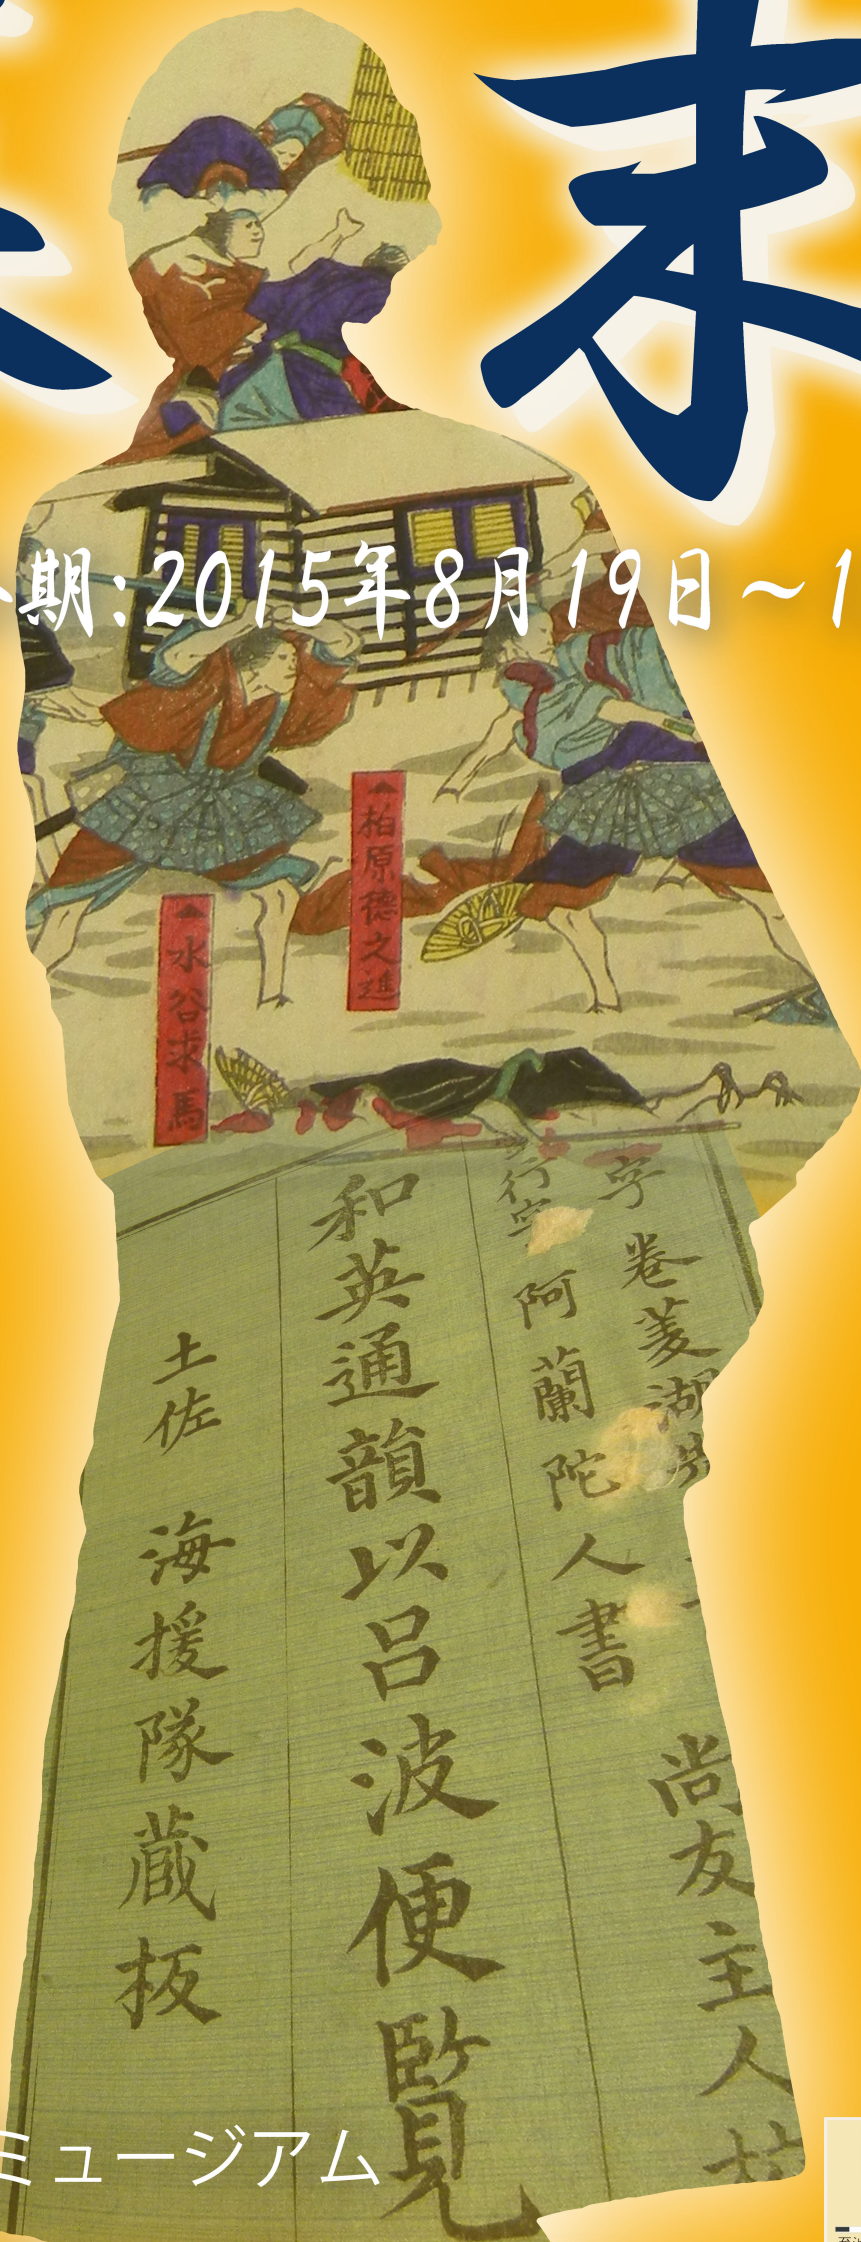 末
期:2015年8月19日～1
柏原徳之進
水谷求馬
字 巻菱湖
行字 阿蘭陀人書
尚友主人
和英通韻以呂波便覧
土佐 海援隊蔵板
ミュージアム